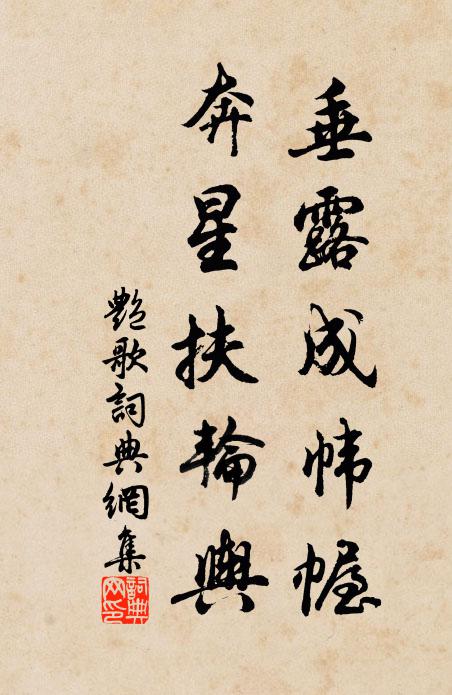 垂露成帏幄
奔星扶輪輿
艷歌詞典網集
詞典网印